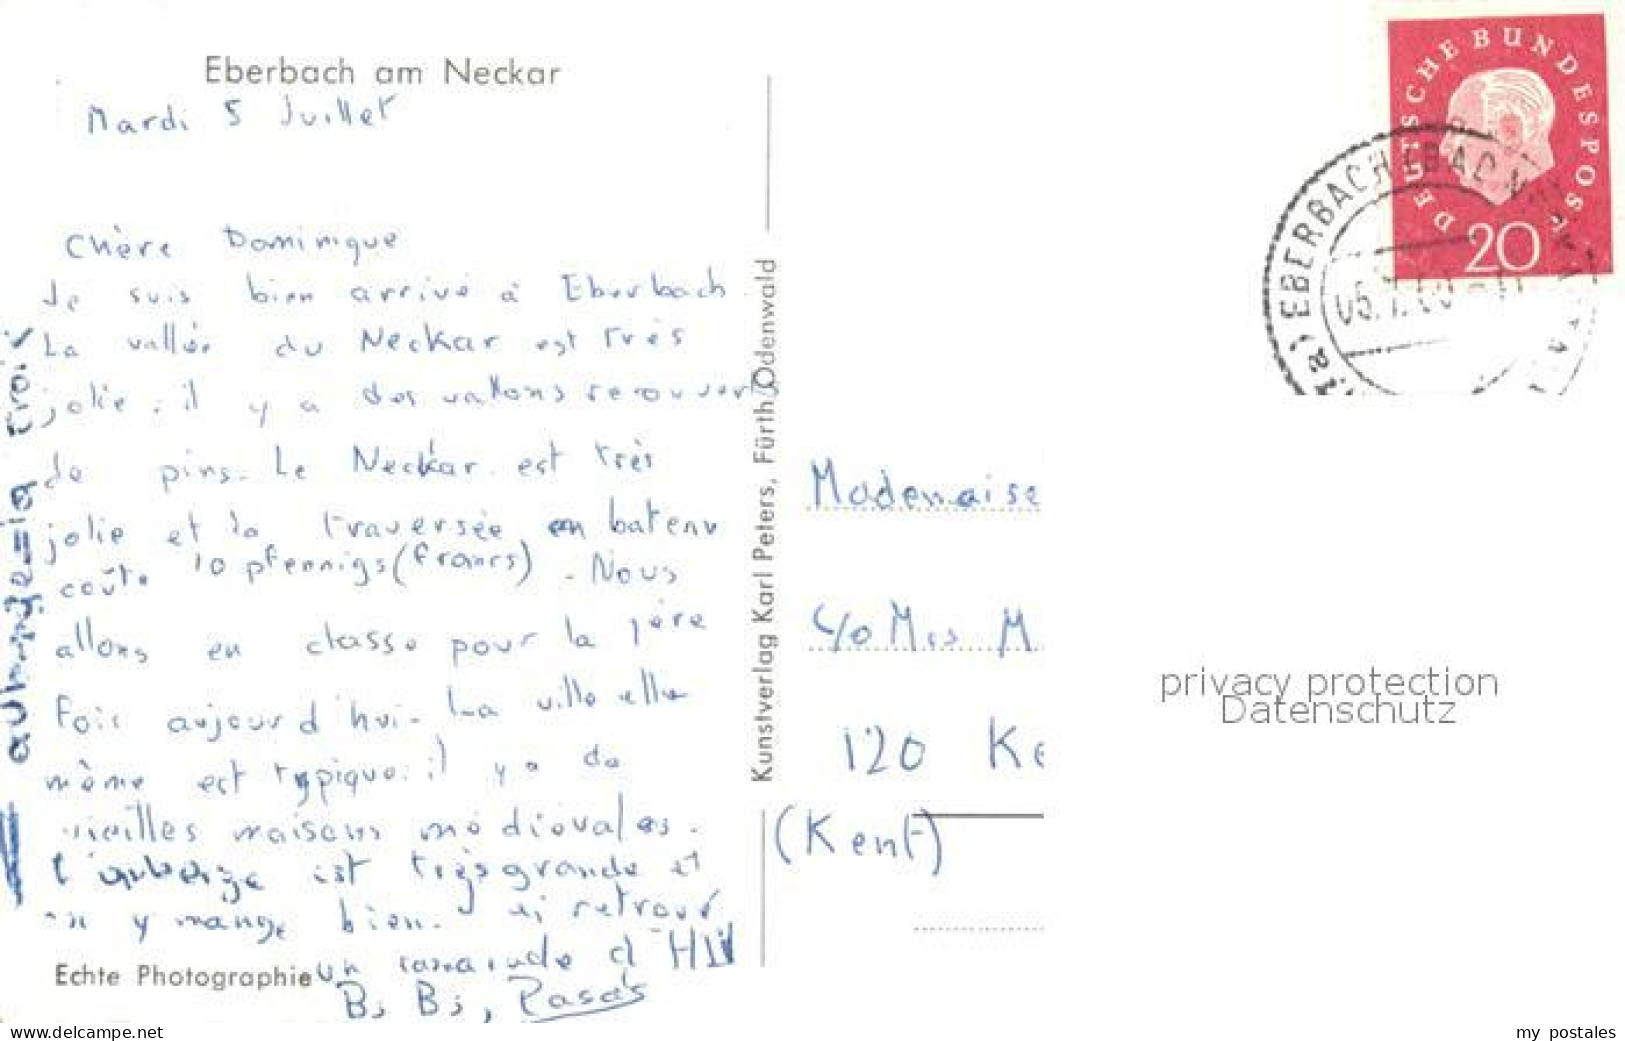 Eberbach am Neckar
Mardi 5 Juillet
Chère Dominique
Je suis bien arrivé à Eberbach
La vallée du Neckar est très
jolie. il y a des vallons recouverts
de pins. Le Neckar est très
jolie et la traversée en bateau
coûte 10 pfennigs (francs). Nous
allons en classe pour la 1ère
fois aujourd'hui. La ville elle
même est typique. il y a de
vieilles maisons médiévales.
L'auberge est très grande et
on y mange bien. J'ai retrouvé
un camarade d'
Bj Bj,
Echte Photographie
Kunstverlag Karl Peters, Fürth/Odenwald
DEUTSCHE BUNDESPOST
20
EBERBACH
05.7.60
Mademaise
c/o Mrs M
120 Ke
(Kent)
privacy protection
Datenschutz
www.delcampe.net
my postales